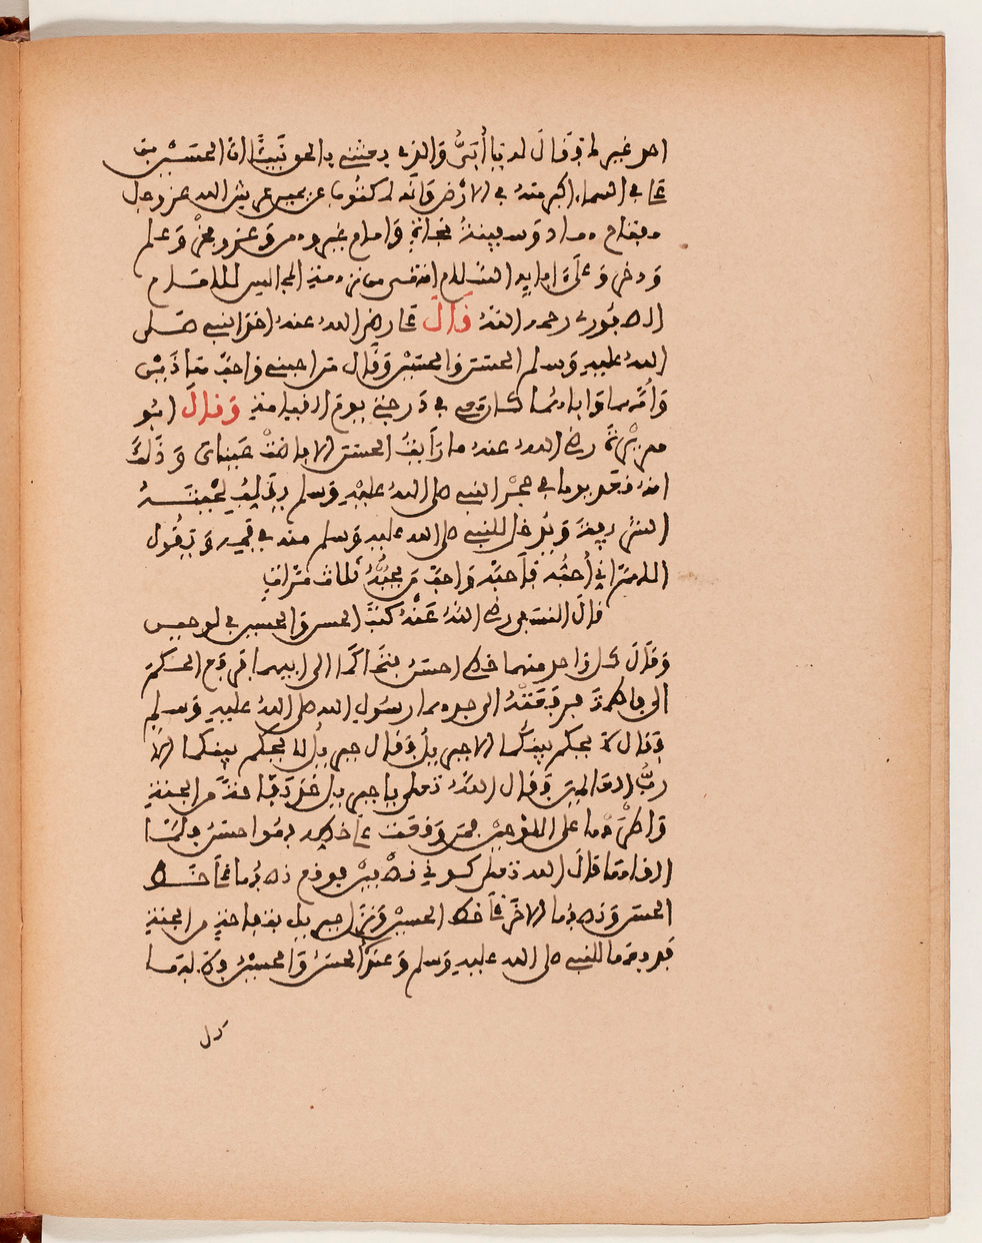 احد غيرك فقال له يا أبي والذي بعثني بالحق نبيا ان الحسين بن
علي في السماء اكبر منه في الارض وانه لمكتوب عن يمين عرش الله عز وجل
مصباح هداد وسبينة نجاة وامام غير وهن وعز وفخر وعلم
وذخر وعلى ابايه السلام انتهى من نزهة المجالس للامام
الصبوري رحمه الله قال علي رضي الله عنه اخذ النبي صلى
الله عليه وسلم الحسن والحسين وقال من احبني واحب هاذين
وأمهما واباهما كان معي في درجتي يوم القيامة وقال ابو
هريرة رضي الله عنه ما رأيت الحسن الا فاضت عيناي وذلك
انه قعد يوما في حجر النبي صلى الله عليه وسلم يقلب لحيته
الشريفة ويدخل للنبي صلى الله عليه وسلم منه في فمه ويقول
اللهم اني أحبه فأحبه واحب من يحبه ثلاث مرات
قال النسفي رضي الله عنه كتب الحسن والحسين في لوحين
وقال كل واحد منهما خطي احسن فتحاكما الى ابيهما فرفع الحكم
الى فاطمة فرفعته الى جدهما رسول الله صلى الله عليه وسلم
فقال لا يحكم بينكما الا جبريل فقال جبريل لا يحكم بينكما الا
رب العالمين فقال الله تعلى يا جبريل خذ تفاحة من الجنة
واطرحها على اللوحين فمن وقعت على خطه فهو احسن فلما
القاها قال الله تعلى كوني نصفين فوقع نصفها على خط
الحسن ونصفها الاخر على خط الحسين ونزل جبريل بتفاحة من الجنة
فعدهما للنبي صلى الله عليه وسلم وعنده الحسن والحسين